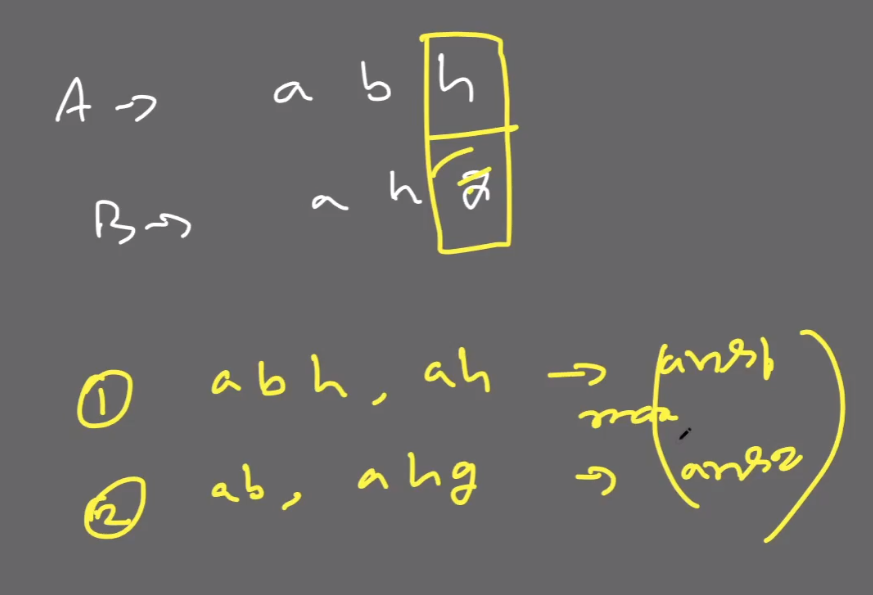 A → a b h
B → a h g
① abh, ah → (ans1
max
② ab, ahg → ans2)